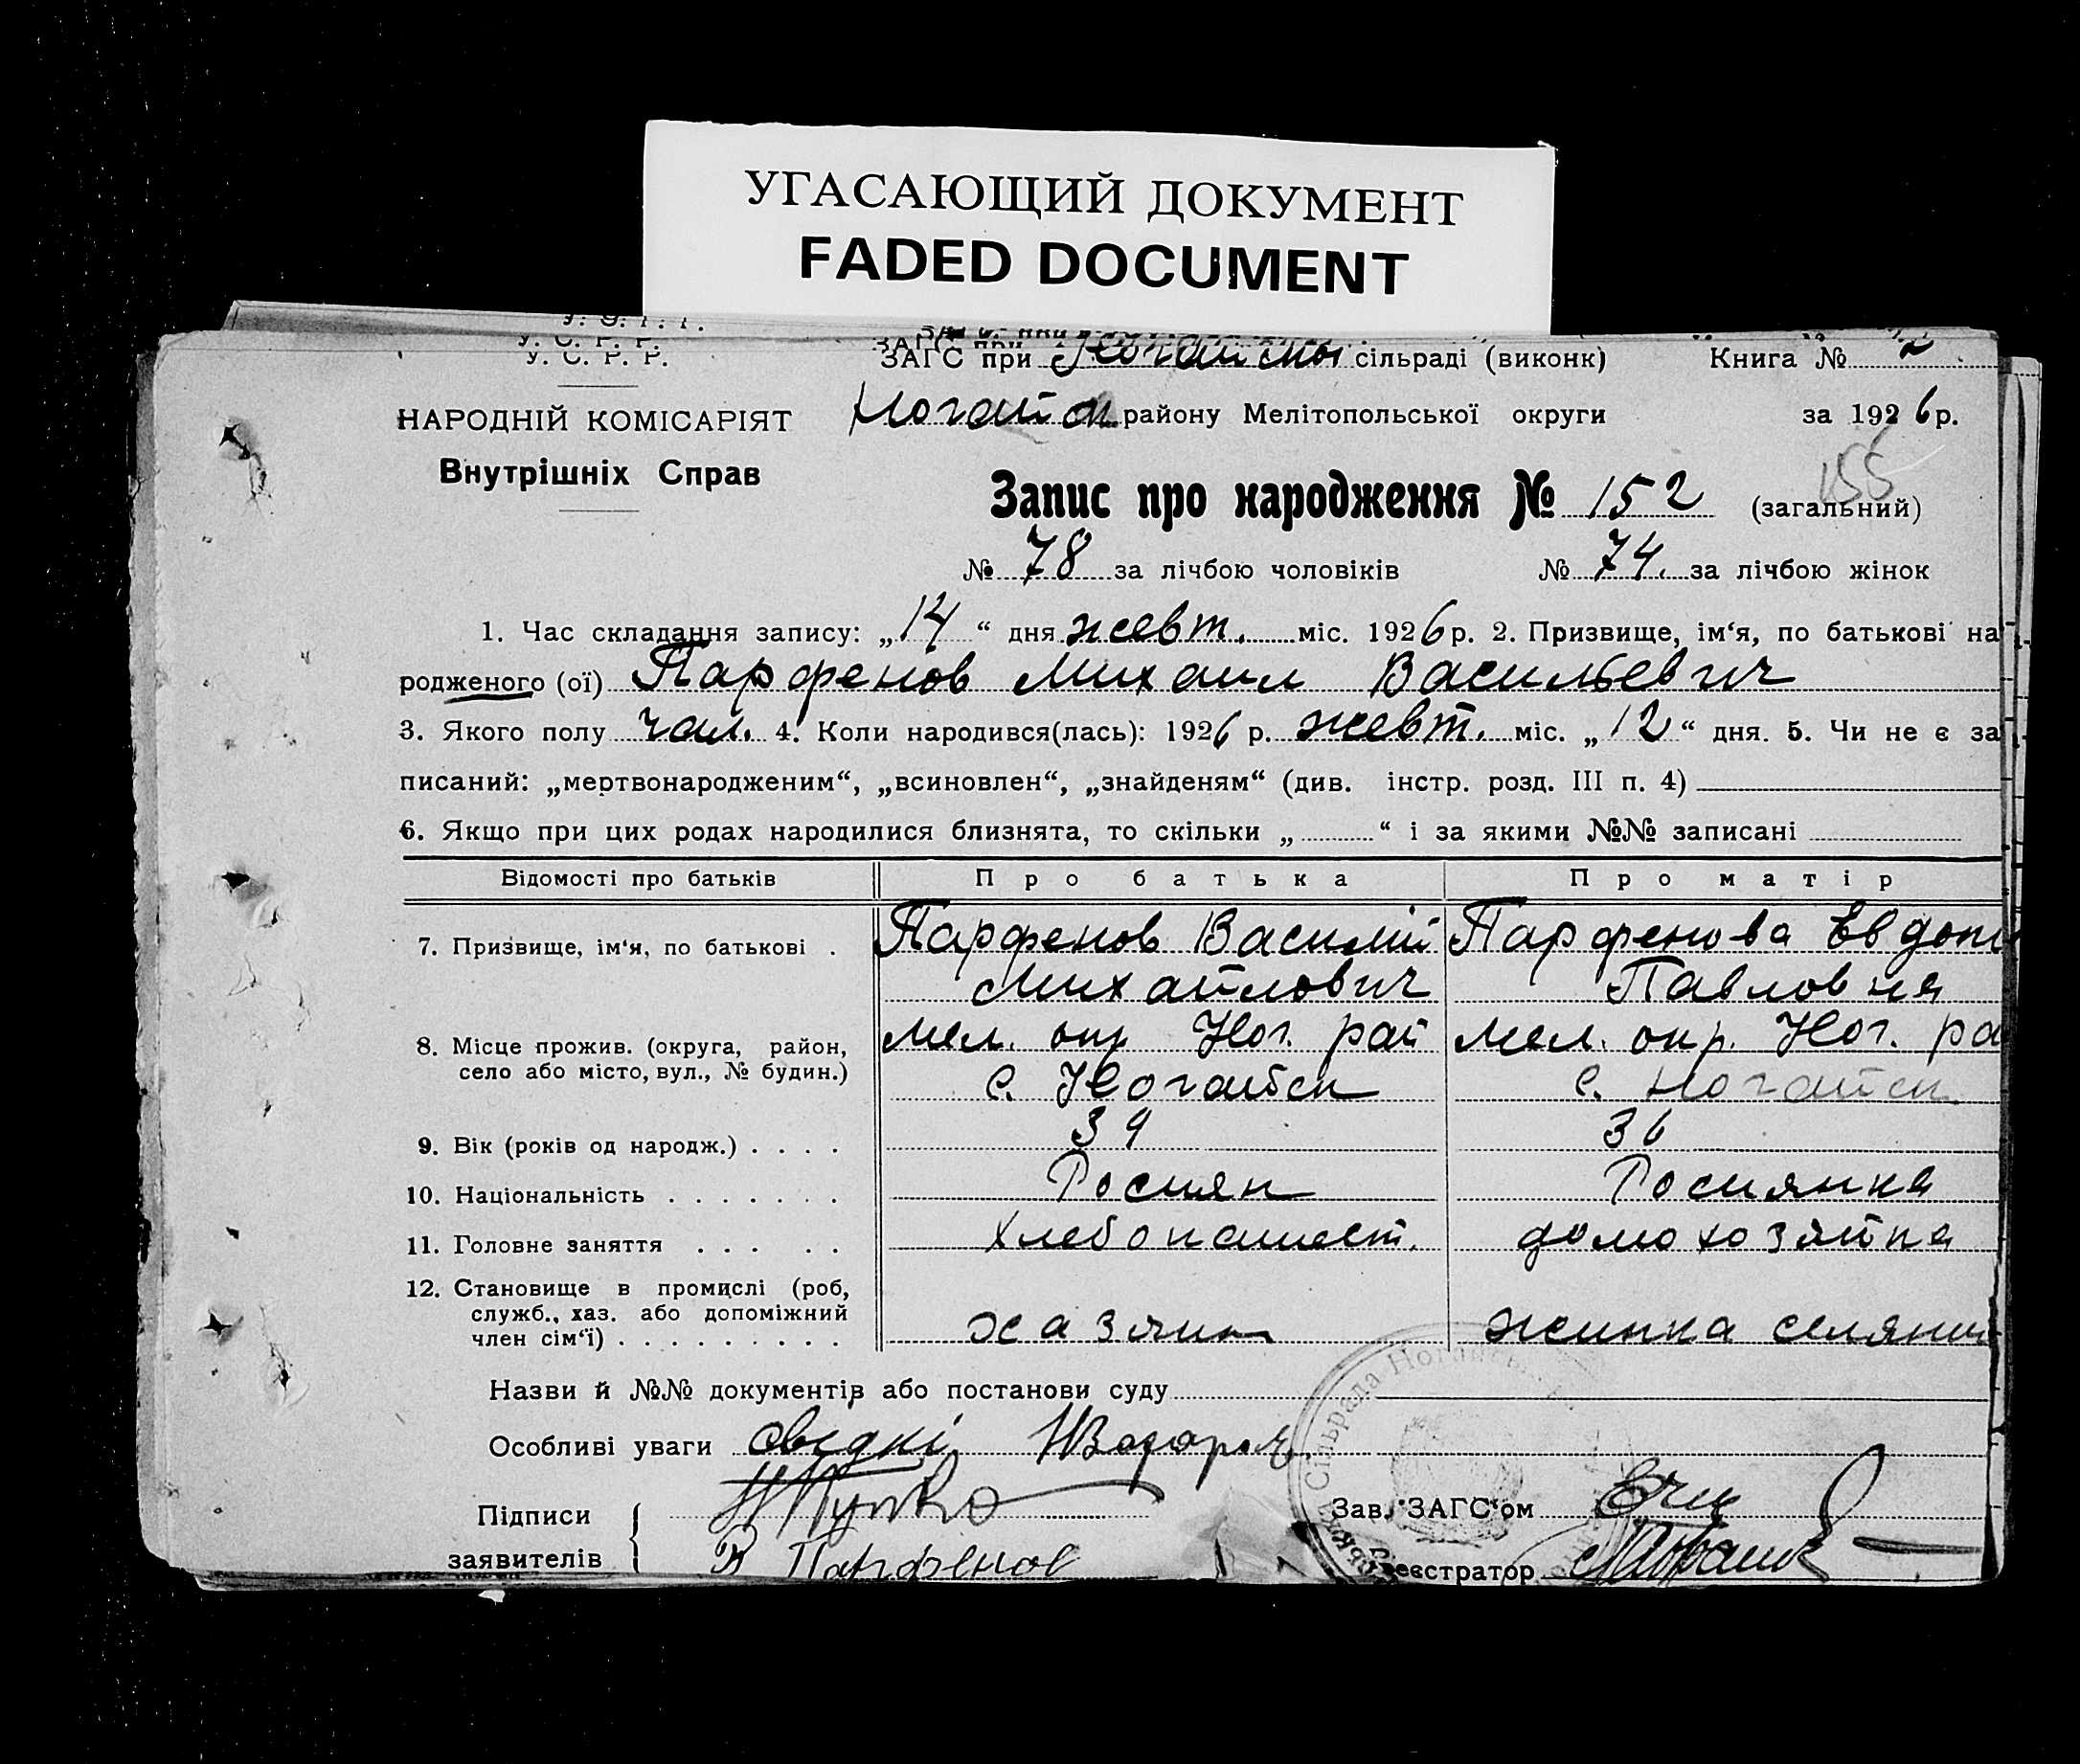 УГАСАЮЩИЙ ДОКУМЕНТ
FADED DOCUMENT
У. С. Р. Р.
ЗАГС при сільраді (виконк) Книга № 2
НАРОДНІЙ КОМІСАРІЯТ
Внутрішніх Справ
Ногайск району Мелітопольської округи за 1926 р.
155
Запис про народження № 152 (загальний)
№ 78 за лічбою чоловіків № 74. за лічбою жінок
1. Час складання запису: „14“ дня жевт. міс. 1926 р. 2. Призвище, ім‘я, по батькові на
родженого (ої) Парфенов Михаил Васильевич
3. Якого полу чол. 4. Коли народився(лась): 1926 р. жевт. міс. „12“ дня. 5. Чи не є за
писаний: „мертвонародженим“, „всиновлен“, „знайденям“ (див. інстр. розд. III п. 4)
6. Якщо при цих родах народилися близнята, то скільки „ “ і за якими №№ записані
Відомості про батьків Про батька Про матір
7. Призвище, ім‘я, по батькові . Парфенов Василий Парфенова
Михайлович Павловня
8. Місце прожив. (округа, район, село або місто, вул., № будин.) Мел. окр. Ног. рай Мел. окр. Ног. ра
с. Ногайск с. Ногайск
9. Вік (років од народж.) . . . . 39 36
10. Національність . . . . . . . Росиян Росиянка
11. Головне заняття . . . . . хлебопашест. домохозяйка
12. Становище в промислі (роб, служб., хаз. або допоміжний член сім‘ї) . . . . . . . . . хазяин жинка
Назви й №№ документів або постанови суду
Особливі уваги свідкі
Підписи заявителів
В Парфенов
Зав. ЗАГС‘ом
Реєстратор
Сільрада